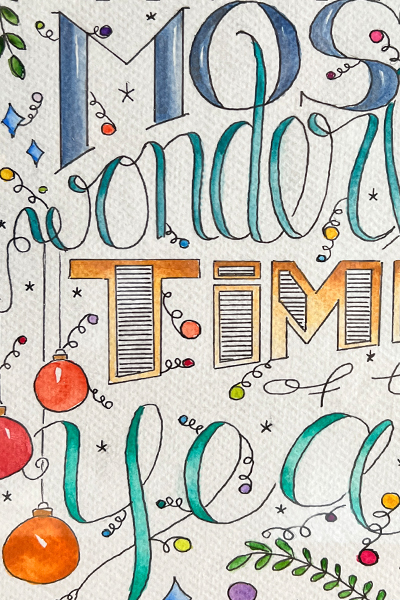 MOS
wonder
TIME
of t
yea